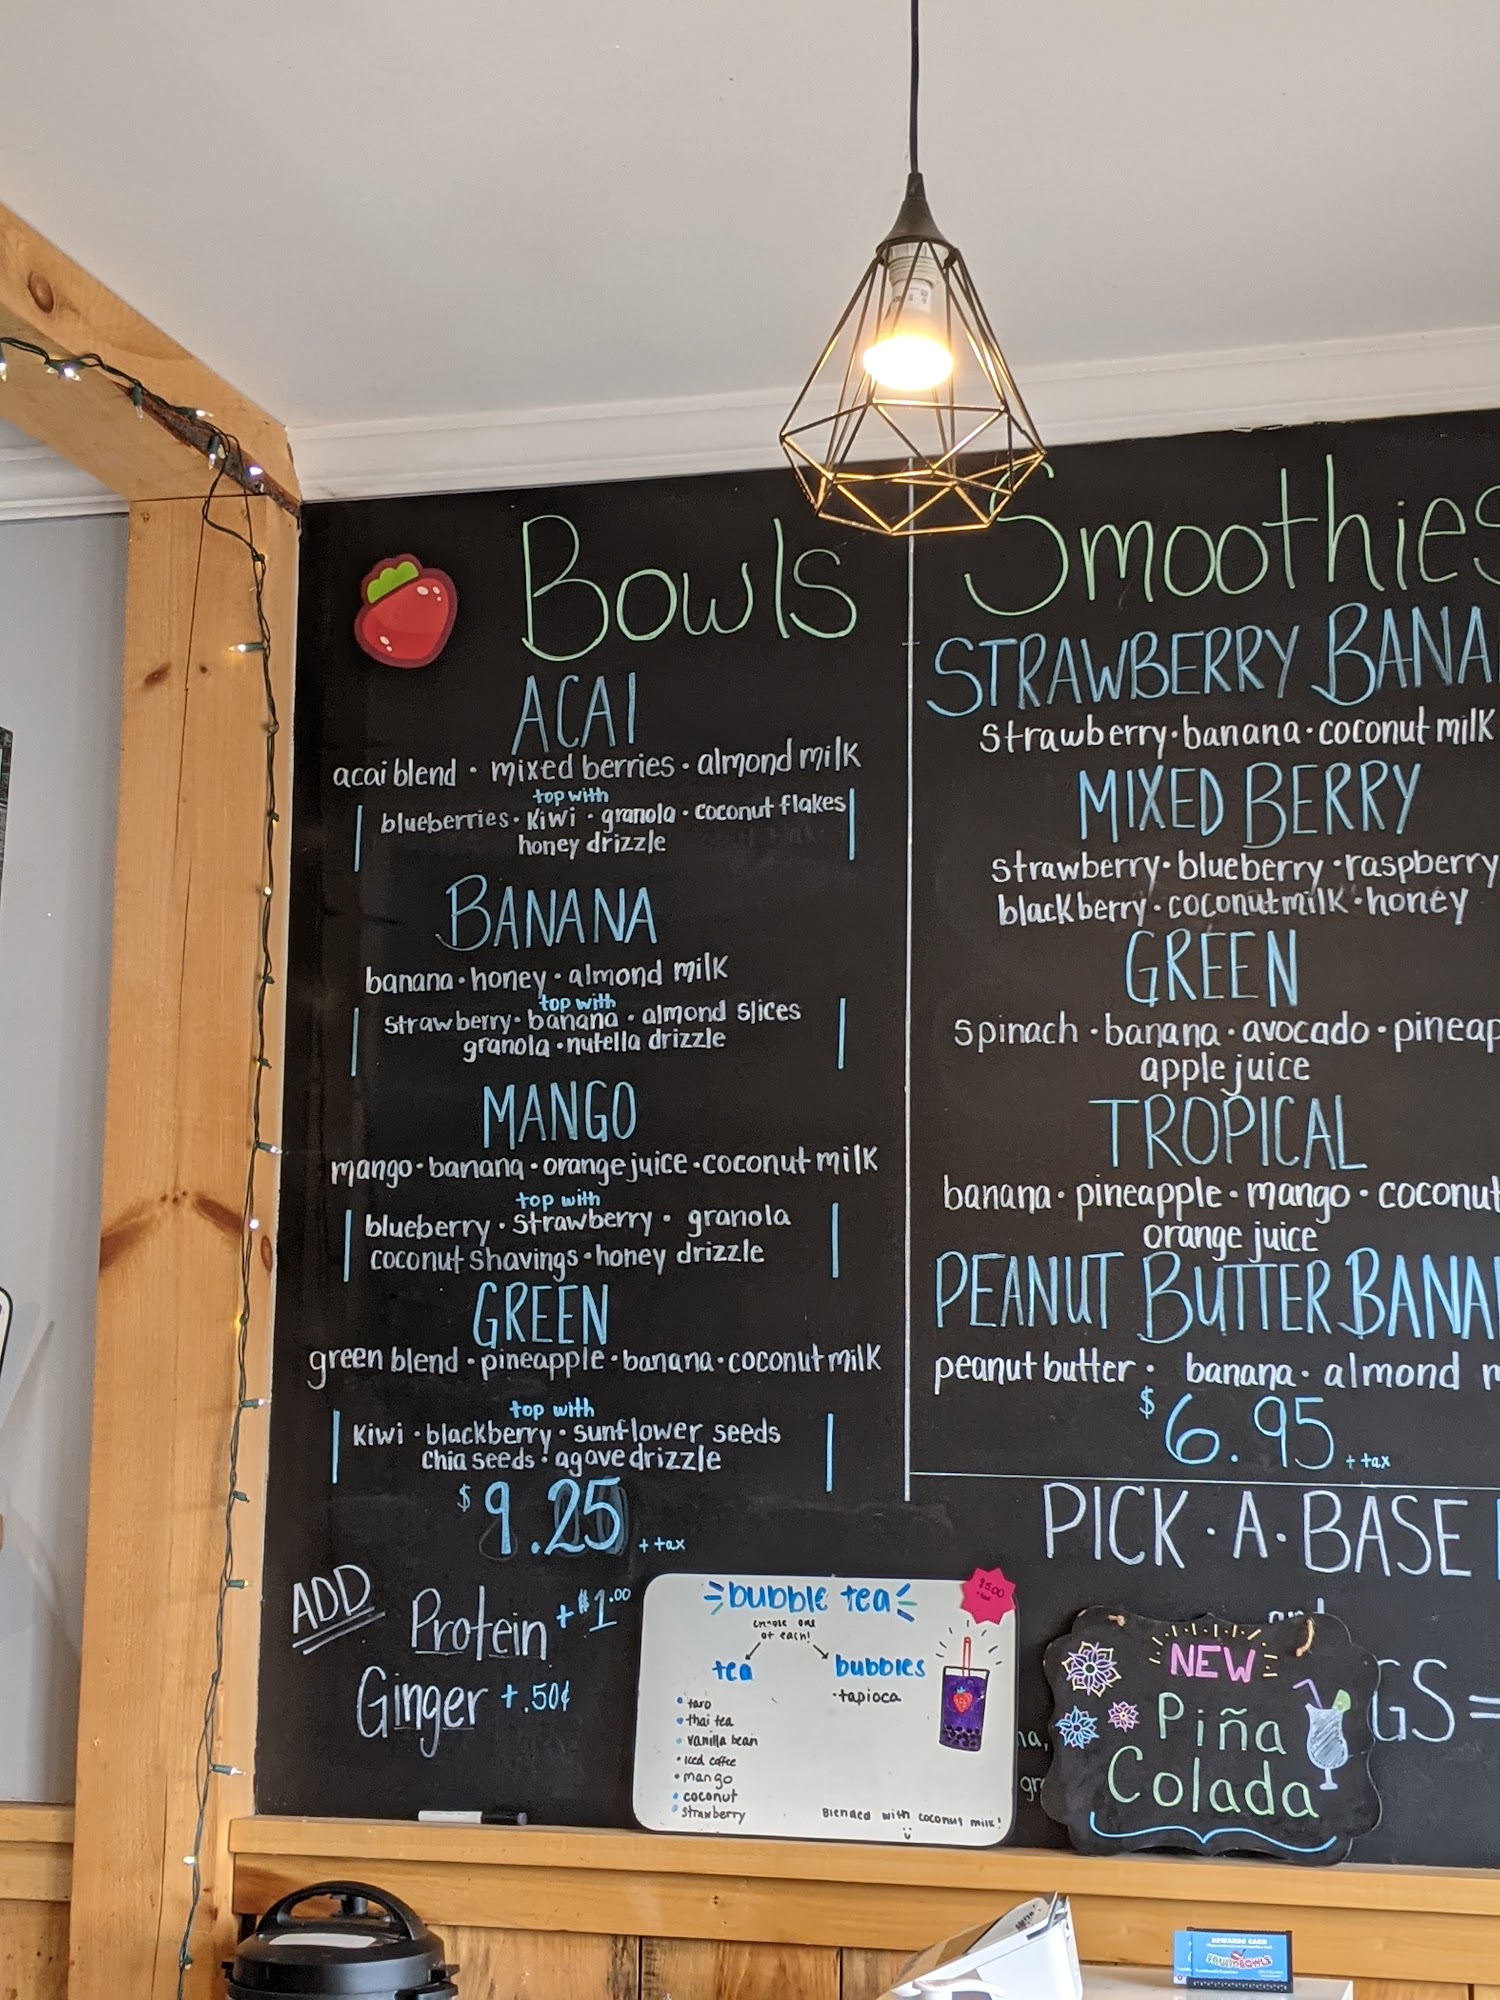 Bowls
ACAI
acai blend · mixed berries · almond milk
top with
blueberries · kiwi · granola · coconut flakes
honey drizzle
BANANA
banana · honey · almond milk
top with
strawberry · banana · almond slices
granola · nutella drizzle
MANGO
mango · banana · orange juice · coconut milk
top with
blueberry · strawberry · granola
coconut shavings · honey drizzle
GREEN
green blend · pineapple · banana · coconut milk
top with
kiwi · blackberry · sunflower seeds
chia seeds · agave drizzle
$9.25 + tax
ADD
Protein + $1.00
Ginger + .50¢
Smoothies
STRAWBERRY BANA
strawberry · banana · coconut milk
MIXED BERRY
strawberry · blueberry · raspberry
blackberry · coconut milk · honey
GREEN
spinach · banana · avocado · pineap
apple juice
TROPICAL
banana · pineapple · mango · coconut
orange juice
PEANUT BUTTER BANA
peanut butter · banana · almond m
$6.95 + tax
PICK · A · BASE
and
GS =
bubble tea
$5.00
choose one
of each!
tea
• taro
• thai tea
• vanilla bean
• iced coffee
• mango
• coconut
• strawberry
bubbles
· tapioca
Blended with coconut milk!
NEW
Piña
Colada
REWARDS CARD